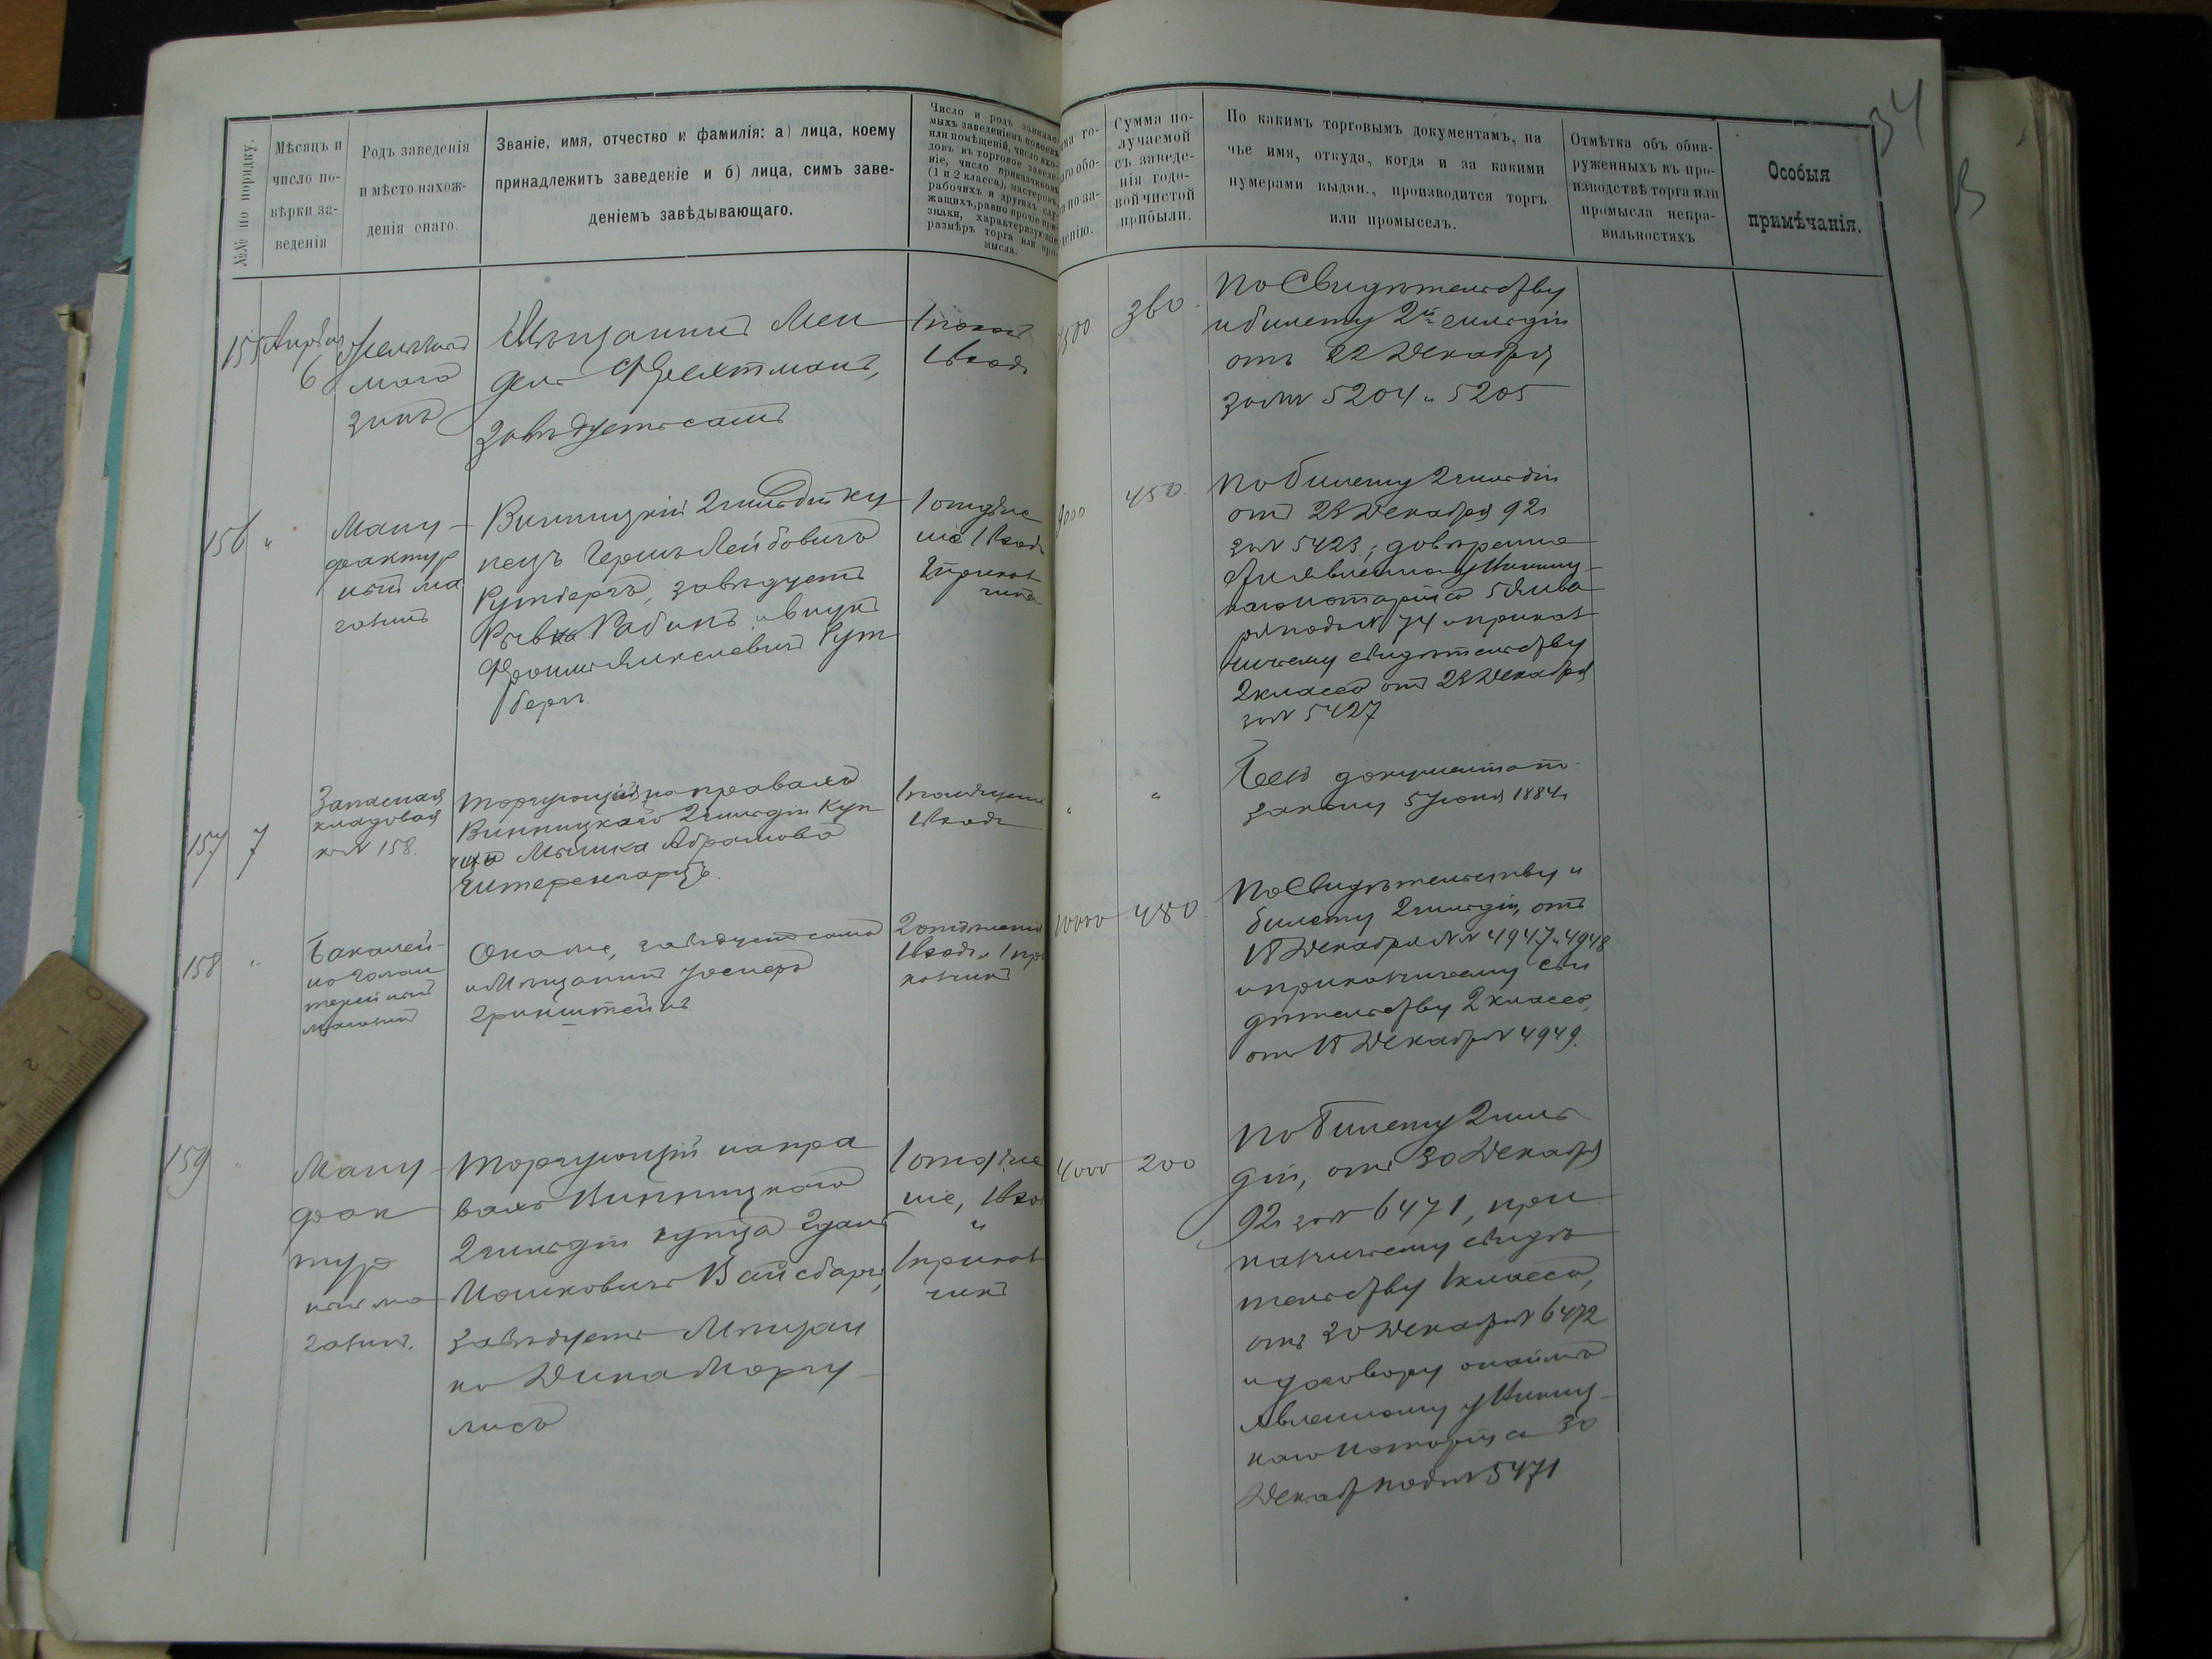 34
№№ по порядку.
Мѣсяцъ и
число по-
вѣрки за-
веденія
Родъ заведенія
и мѣсто нахож-
денія онаго.
Званіе, имя, отчество и фамилія: а) лица, коему
принадлежитъ заведеніе и б) лица, симъ заве-
деніемъ завѣдывающаго.
Число и родъ занимае-
мыхъ заведеніемъ покоевъ
или помѣщеній, число вхо-
довъ въ торговое заведе-
ніе, число приказчиковъ
(1 и 2 класса), мастеровъ,
рабочихъ и другихъ слу-
жащихъ, равно прочіе при-
знаки, характеризующіе
размѣръ торга или про-
мысла.
Сумма по-
лучаемой
съ заведе-
нія годо-
вой чистой
прибыли.
По какимъ торговымъ документамъ, на
чье имя, откуда, когда и за какими
нумерами выдан., производится торгъ
или промыселъ.
Отмѣтка объ обна-
руженныхъ въ про-
изводствѣ торга или
промысла непра-
вильностяхъ
Особыя
примѣчанія.
155
Апрѣля
6
мага
зинъ
Мѣщанинъ Мен
дель Фрехтманъ,
завѣдуетъ самъ
1 покой
1 входъ
360
По Свидѣтельству
и билету 2й гильдіи
отъ 22 Декабря
за №№ 5204 и 5205
156 "
Ману-
фактур
ный ма
газинъ
Винницкій 2 гильдіи ку
пецъ Гершъ Лейбовичъ
Гутбергъ, завѣдуетъ
Рабинъ и внукъ
Гут
бергъ
1 отдѣле
ніе 1 входъ
2 приказ
чика
9000
450
По билету 2 гильдіи
отъ 23 Декабря 92 г
за № 5423; довѣренно
сти явленной у Винниц-
каго нотаріуса 5 Янва
ря подъ № 74 и приказ
чичьему свидѣтельству
2 класса отъ 23 Декабря
за № 5427
157 7
Запасная
кладовая
къ № 158.
Торгующій на правахъ
Винницкаго 2 гильдіи Куп
ца Мошка Абрамова
1 помѣщеніе
1 входъ
" "
Безъ документа по
закону 5 Іюня 1884 г
158 "
Бакалей-
но галан
терейный
магазинъ
Онъ же, завѣдуетъ самъ
и Мѣщанинъ Іосифъ
Гринштейнъ
2 отдѣленія
1 входъ и 1 при
казчикъ
10000
480
По Свидѣтельству и
билету 2 гильдіи, отъ
18 Декабря №№ 4947 и 4948
и приказчичьему сви
дѣтельству 2 класса,
отъ 18 Декабря № 4949.
159 "
Ману-
фак
тур
ный ма
газинъ.
Торгующій на пра
вахъ Винницкаго
2 гильдіи купца
Мошковичъ Вайсбергъ,
завѣдуетъ Мѣщан
ка Дина Маргу-
лисъ
1 отдѣле
ніе, 1 вхо
и
1 приказ
чикъ
4000
200
По билету 2 гиль
діи, отъ 30 Декабря
92 г за № 6471, при
казчичьему свидѣ
тельству 1 класса,
отъ 30 Декабря № 6472
и договору о наймѣ
явленному у Винниц-
каго Нотаріуса 30
Декаб подъ № 5471